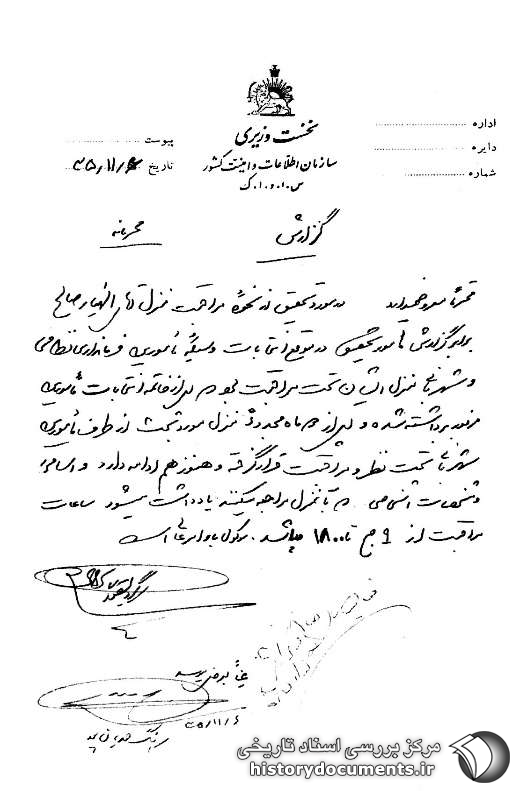 نخست وزیری
سازمان اطلاعات و امنیت کشور
س.ا.و.ا.ک
اداره
دایره
شماره
پیوست
تاریخ ۳۵/۱۱/۶
گزارش
محرمانه
محترماً معروض میدارد در مورد تحقیق از نحوه مراقبت منزل آقای الهیار صالح
برابر گزارش مأمور تحقیق در موقع انتخابات وسیله مأمورین فرمانداری نظامی
و شهربانی منزل ایشان تحت مراقبت بوده پس از خاتمه انتخابات مأمورین
مزبور برداشته شده و پس از ماه مجدداً منزل مورد بحث از طرف مأمورین
شهربانی تحت نظر و مراقبت قرار گرفته و هنوز هم ادامه دارد و اسامی
و مشخصات اشخاصی که با منزل مراجعه میکنند یادداشت میشود ساعات
مراقبت از ۹ صبح تا ۱۸۰۰ میباشد. موکول باوامر عالی است
عیناً بعرض میرسد
۳۵/۱۱/۶
مرکز بررسی اسناد تاریخی
historydocuments.ir